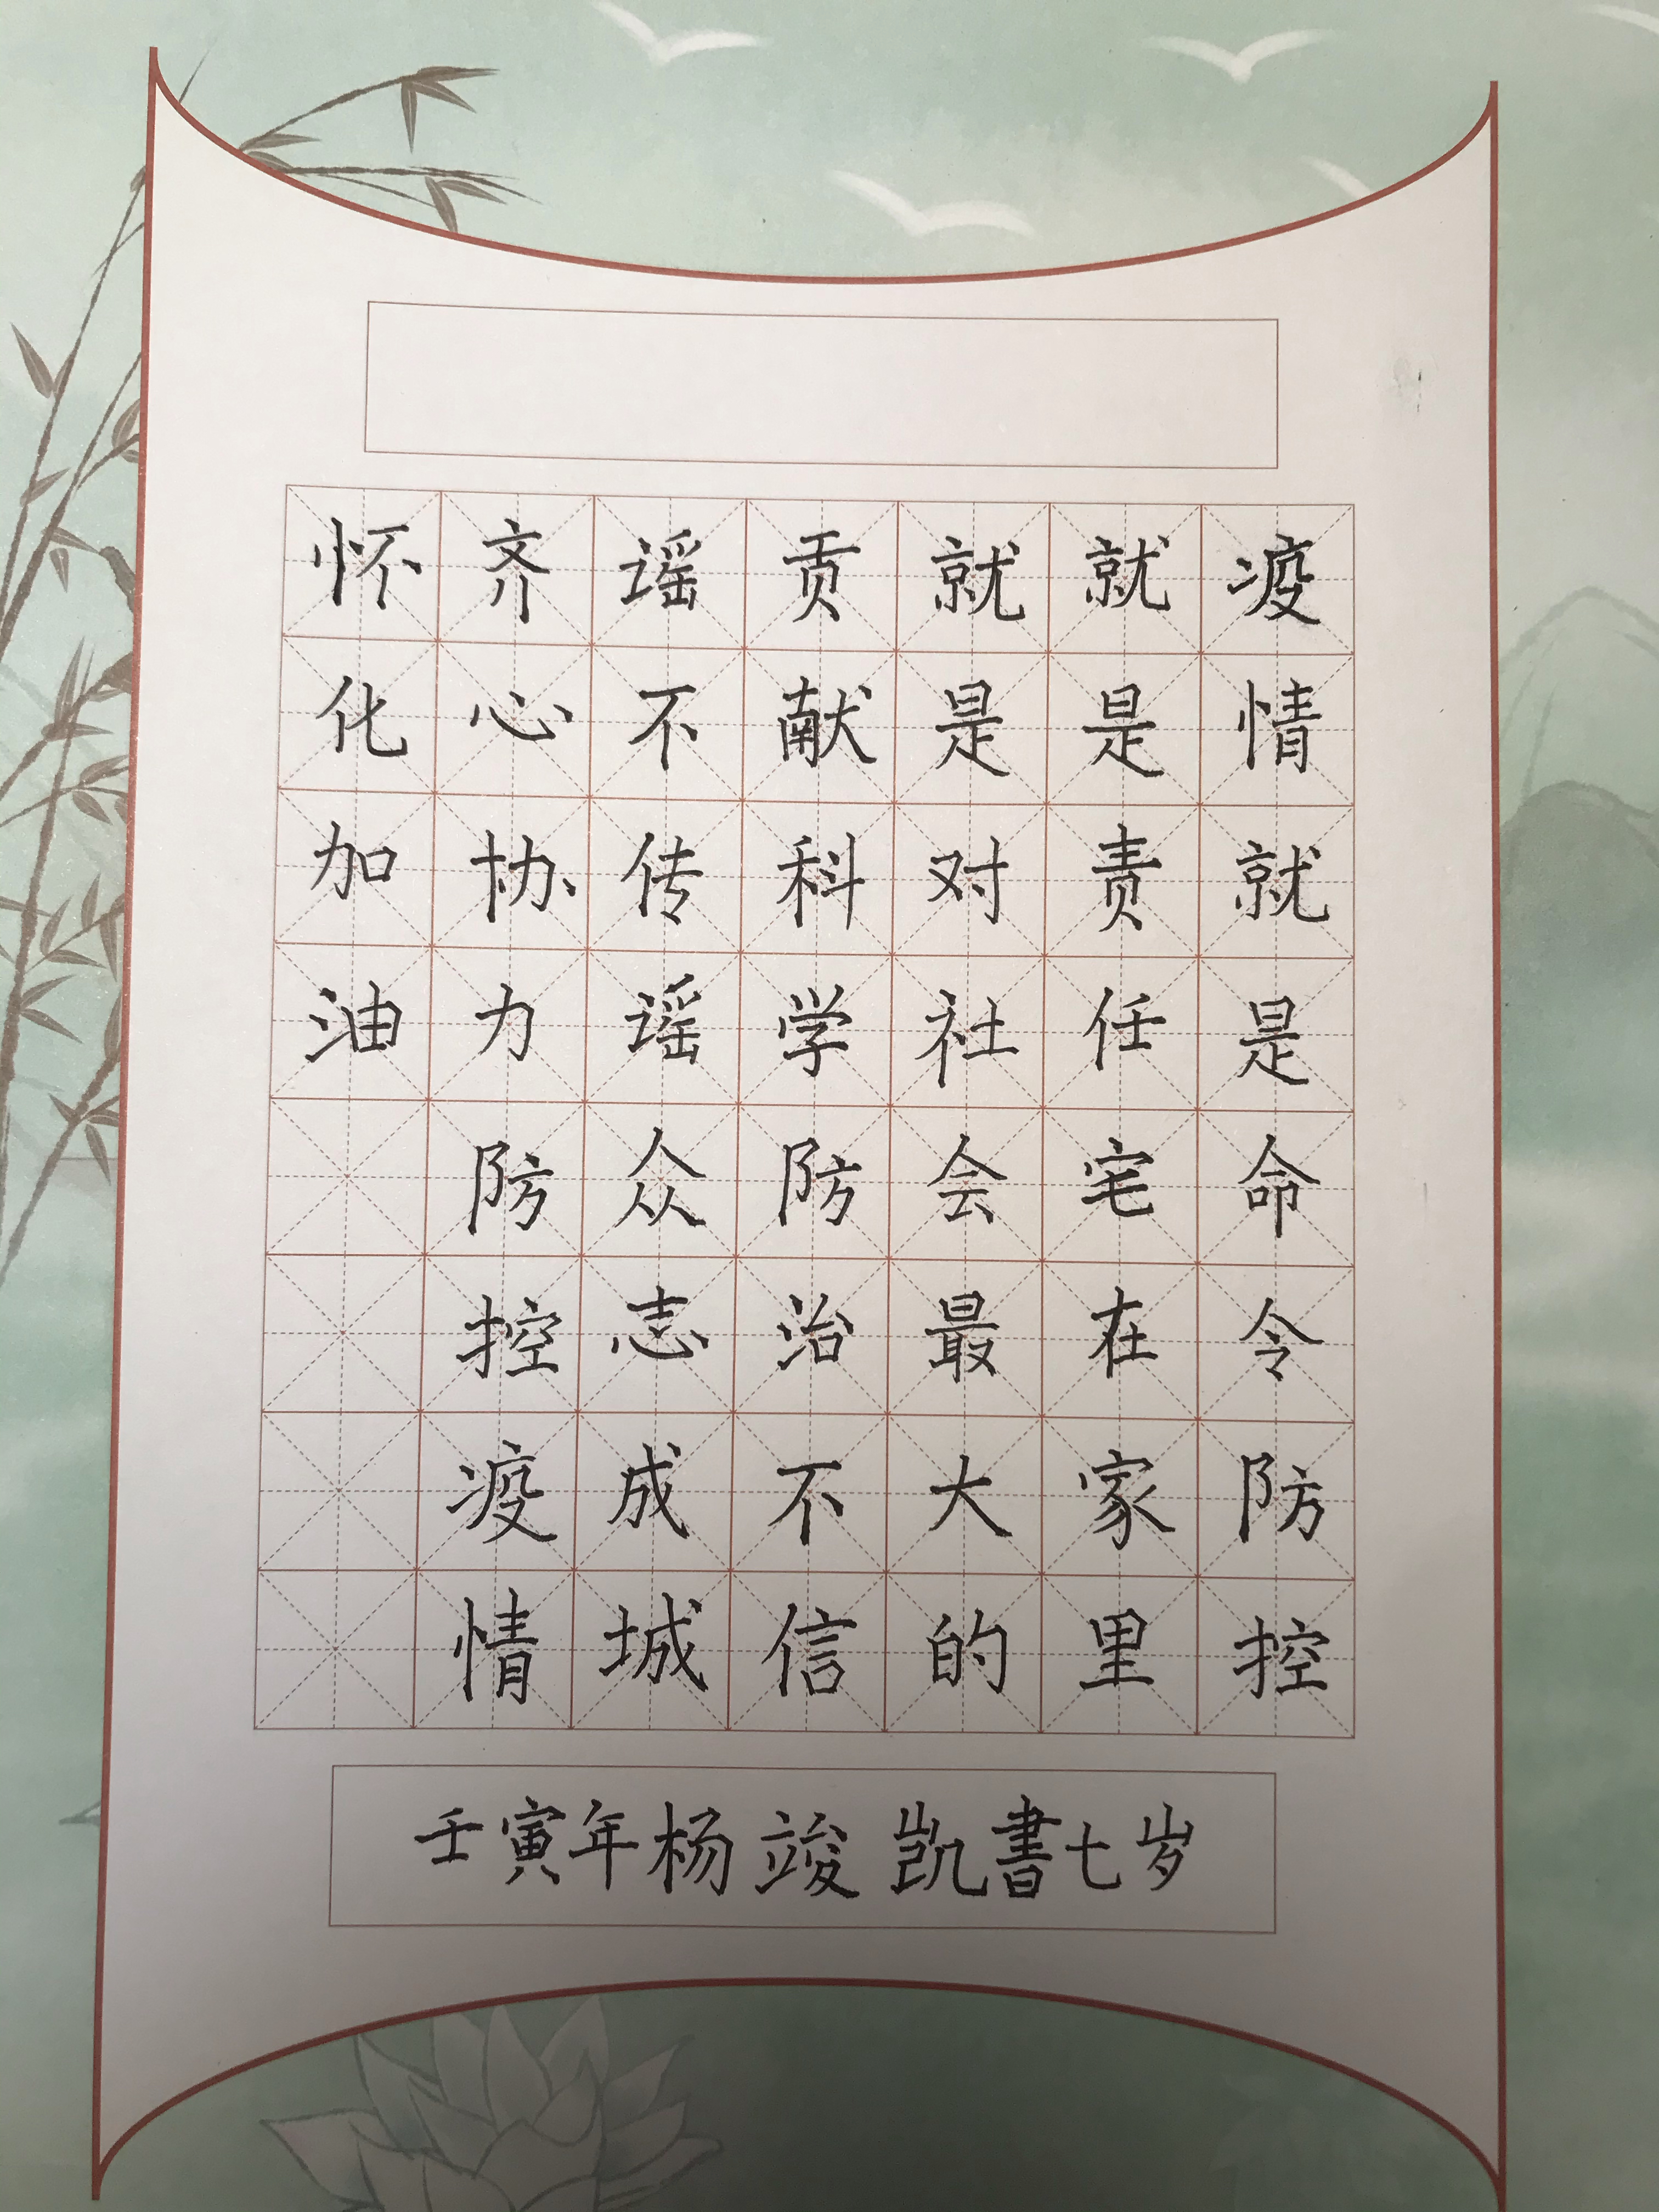 疫情就是命令防控
就是责任宅在家里
就是对社会最大的
贡献科学防治不信
谣不传谣众志成城
齐心协力防控疫情
怀化加油
壬寅年杨竣凯書七岁